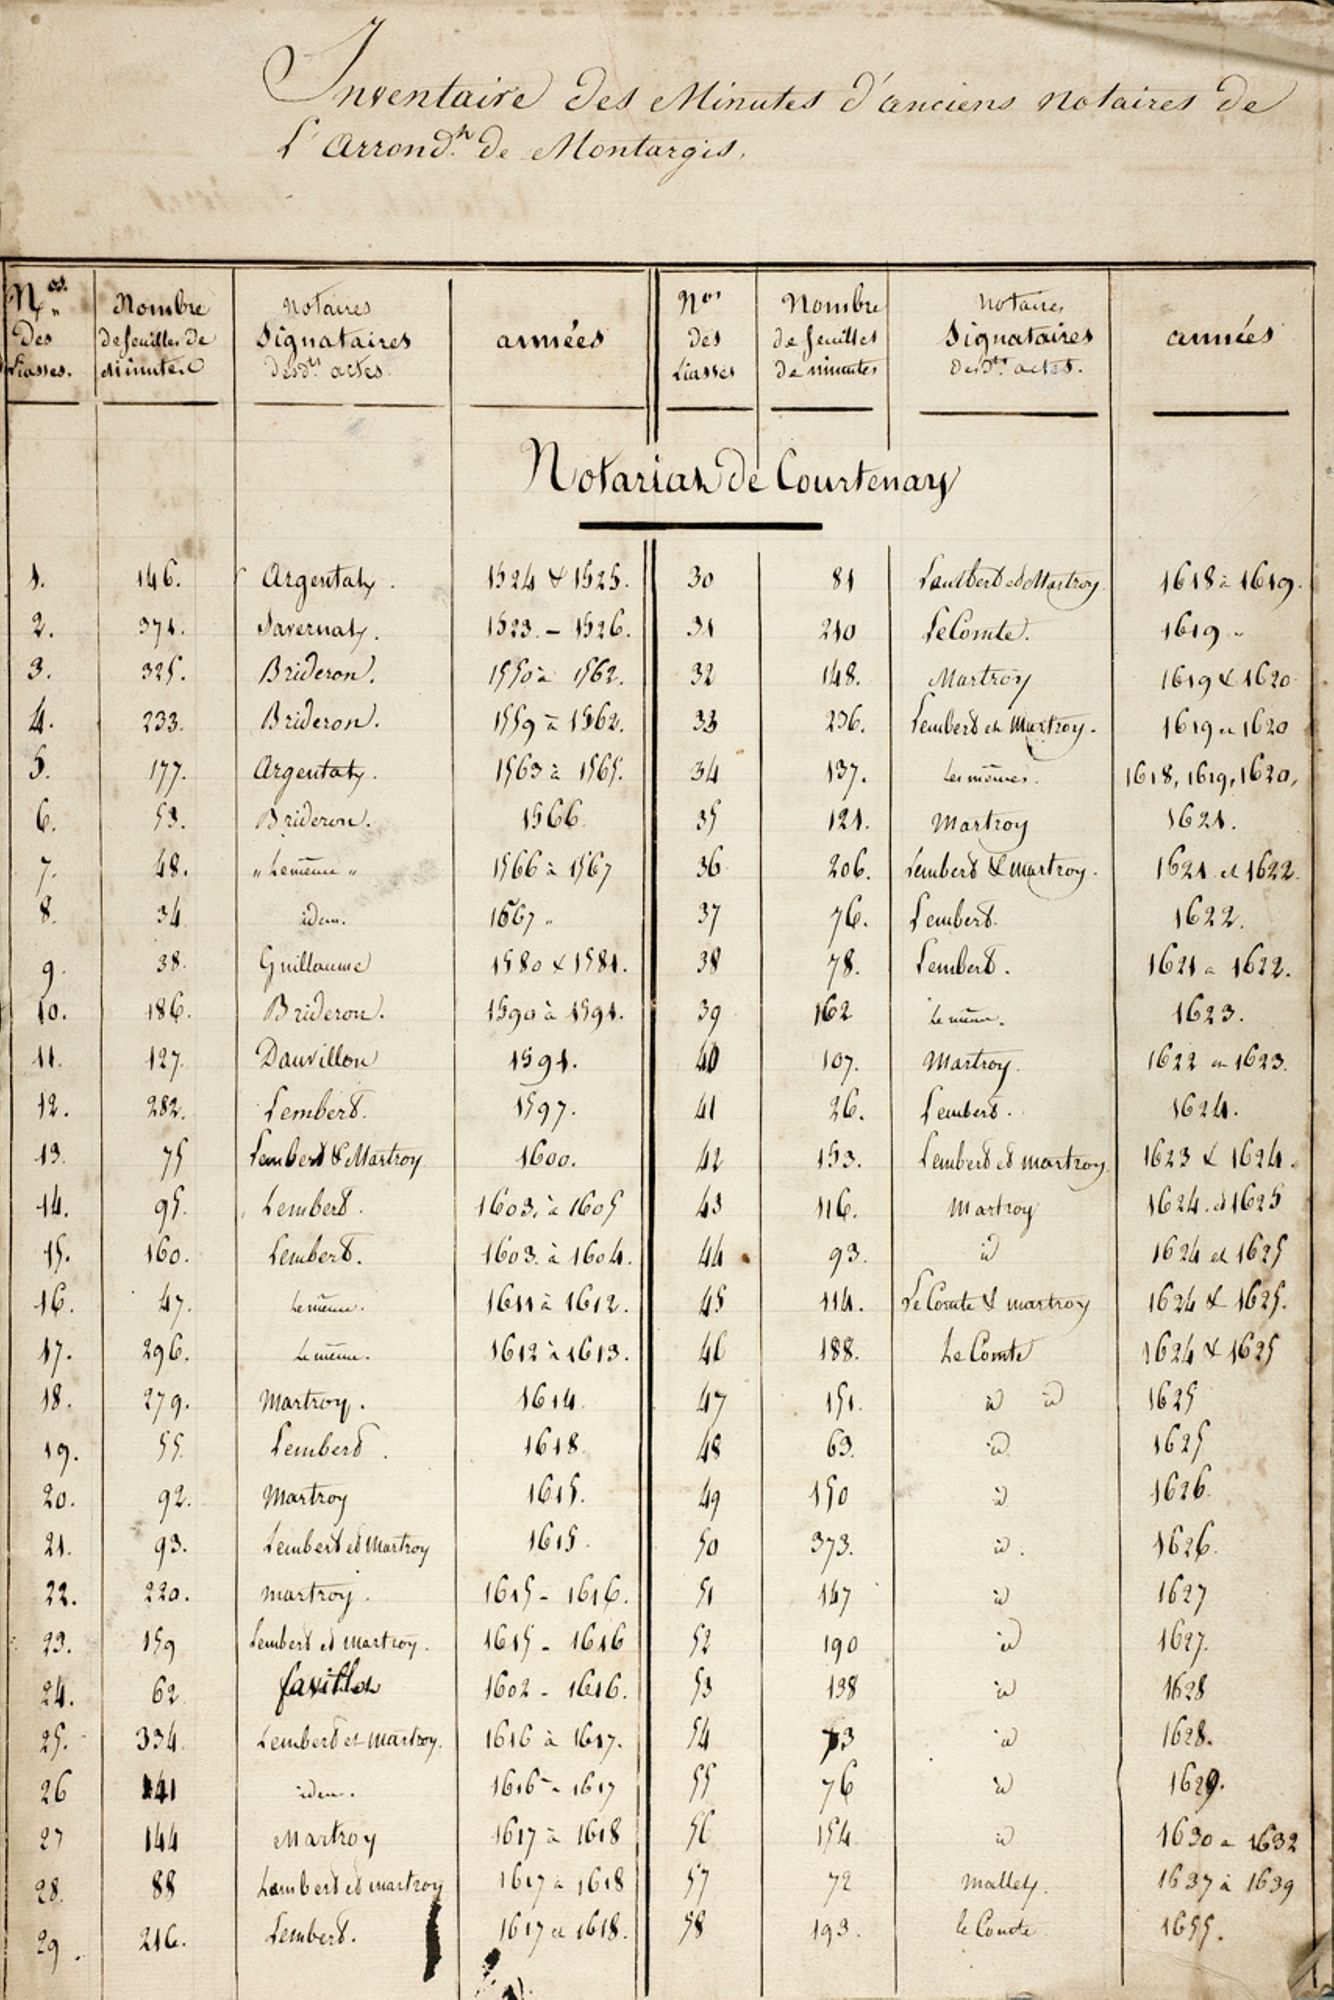 Inventaire des Minutes d'anciens notaires de
l'Arrond.t de Montargis.
N.os des Liasses. | Nombre de feuilles de minutes | notaires Signataires desd.ts actes. | années | Nos des Liasses | Nombre de feuilles de minutes | notaires Signataires desd.ts actes. | années
Notariat de Courtenay
1. 146. Argentat. 1524 & 1525. 30 81 Lambert et Martroy 1618 à 1619.
2. 371. 1523. - 1526. 31 210 LeComte. 1619 "
3. 325. Brideron. 1550 à 1562. 32 148. Martroy 1619 & 1620
4. 233. Brideron. 1559 à 1562. 33 236. Lembert et Martroy. 1619 et 1620
5. 177. Argentat. 1563 à 1565. 34 137. les mêmes. 1618, 1619, 1620,
6. 53. Brideron. 1566. 35 121. Martroy 1621.
7. 48. " Le même " 1566 à 1567 36 206. Lembert & martroy. 1621 et 1622.
8. 34 idem. 1567 " 37 76. Lembert. 1622.
9. 38. Guillaume 1580 & 1581. 38 78. Lembert. 1621 à 1622.
10. 186. Brideron. 1590 à 1591. 39 162 le même. 1623.
11. 127. Dauvillon 1591. 40 107. Martroy. 1622 et 1623.
12. 282. Lembert. 1597. 41 26. Lembert. 1624.
13. 75 Lembert & Martroy 1600. 42 153. Lembert et martroy 1623 & 1624.
14. 95. Lembert. 1603. à 1605 43 116. Martroy 1624. et 1625
15. 160. Lembert. 1603. à 1604. 44 93. id 1624 et 1625
16. 47. Le même. 1611 à 1612. 45 114. Le Comte & martroy 1624 & 1625.
17. 296. Le même. 1612 à 1613. 46 188. Le Comte 1624 & 1625
18. 279. Martroy. 1614. 47 151. id id 1625
19. 55. Lembert. 1618. 48 63. id 1625
20. 92. Martroy 1615. 49 150 id 1626.
21. 93. Lembert et Martroy 1615. 50 373. id. 1626.
22. 220. martroy. 1615 - 1616. 51 147 id 1627
23. 159 Lembert et martroy. 1615 - 1616 52 190 id 1627.
24. 62 1602 - 1616. 53 138 id 1628
25. 334 Lembert et martroy. 1616 à 1617. 54 73 id 1628.
26 141 idem. 1616 - 1617 55 76 id 1629.
27 144 Martroy 1617 à 1618 56 154 id 1630 à 1632
28. 88 Lambert et martroy 1617 à 1618 57 72 Mallet. 1637 à 1639
29. 216. Lembert. 1617 et 1618. 58 193. le Comte 1655.